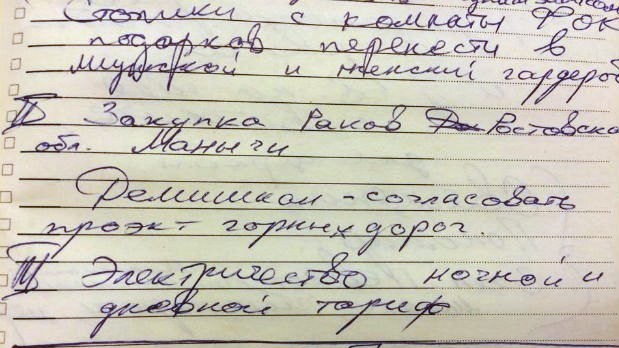 Столики с комнаты ФОК
подарков перенести в
мужской и женский гардероб
II Закупка Раков Ростовска
обл. Манычи
Ремишкан - согласовать
проэкт горных дорог.
III Электричество ночной и
дневной тариф